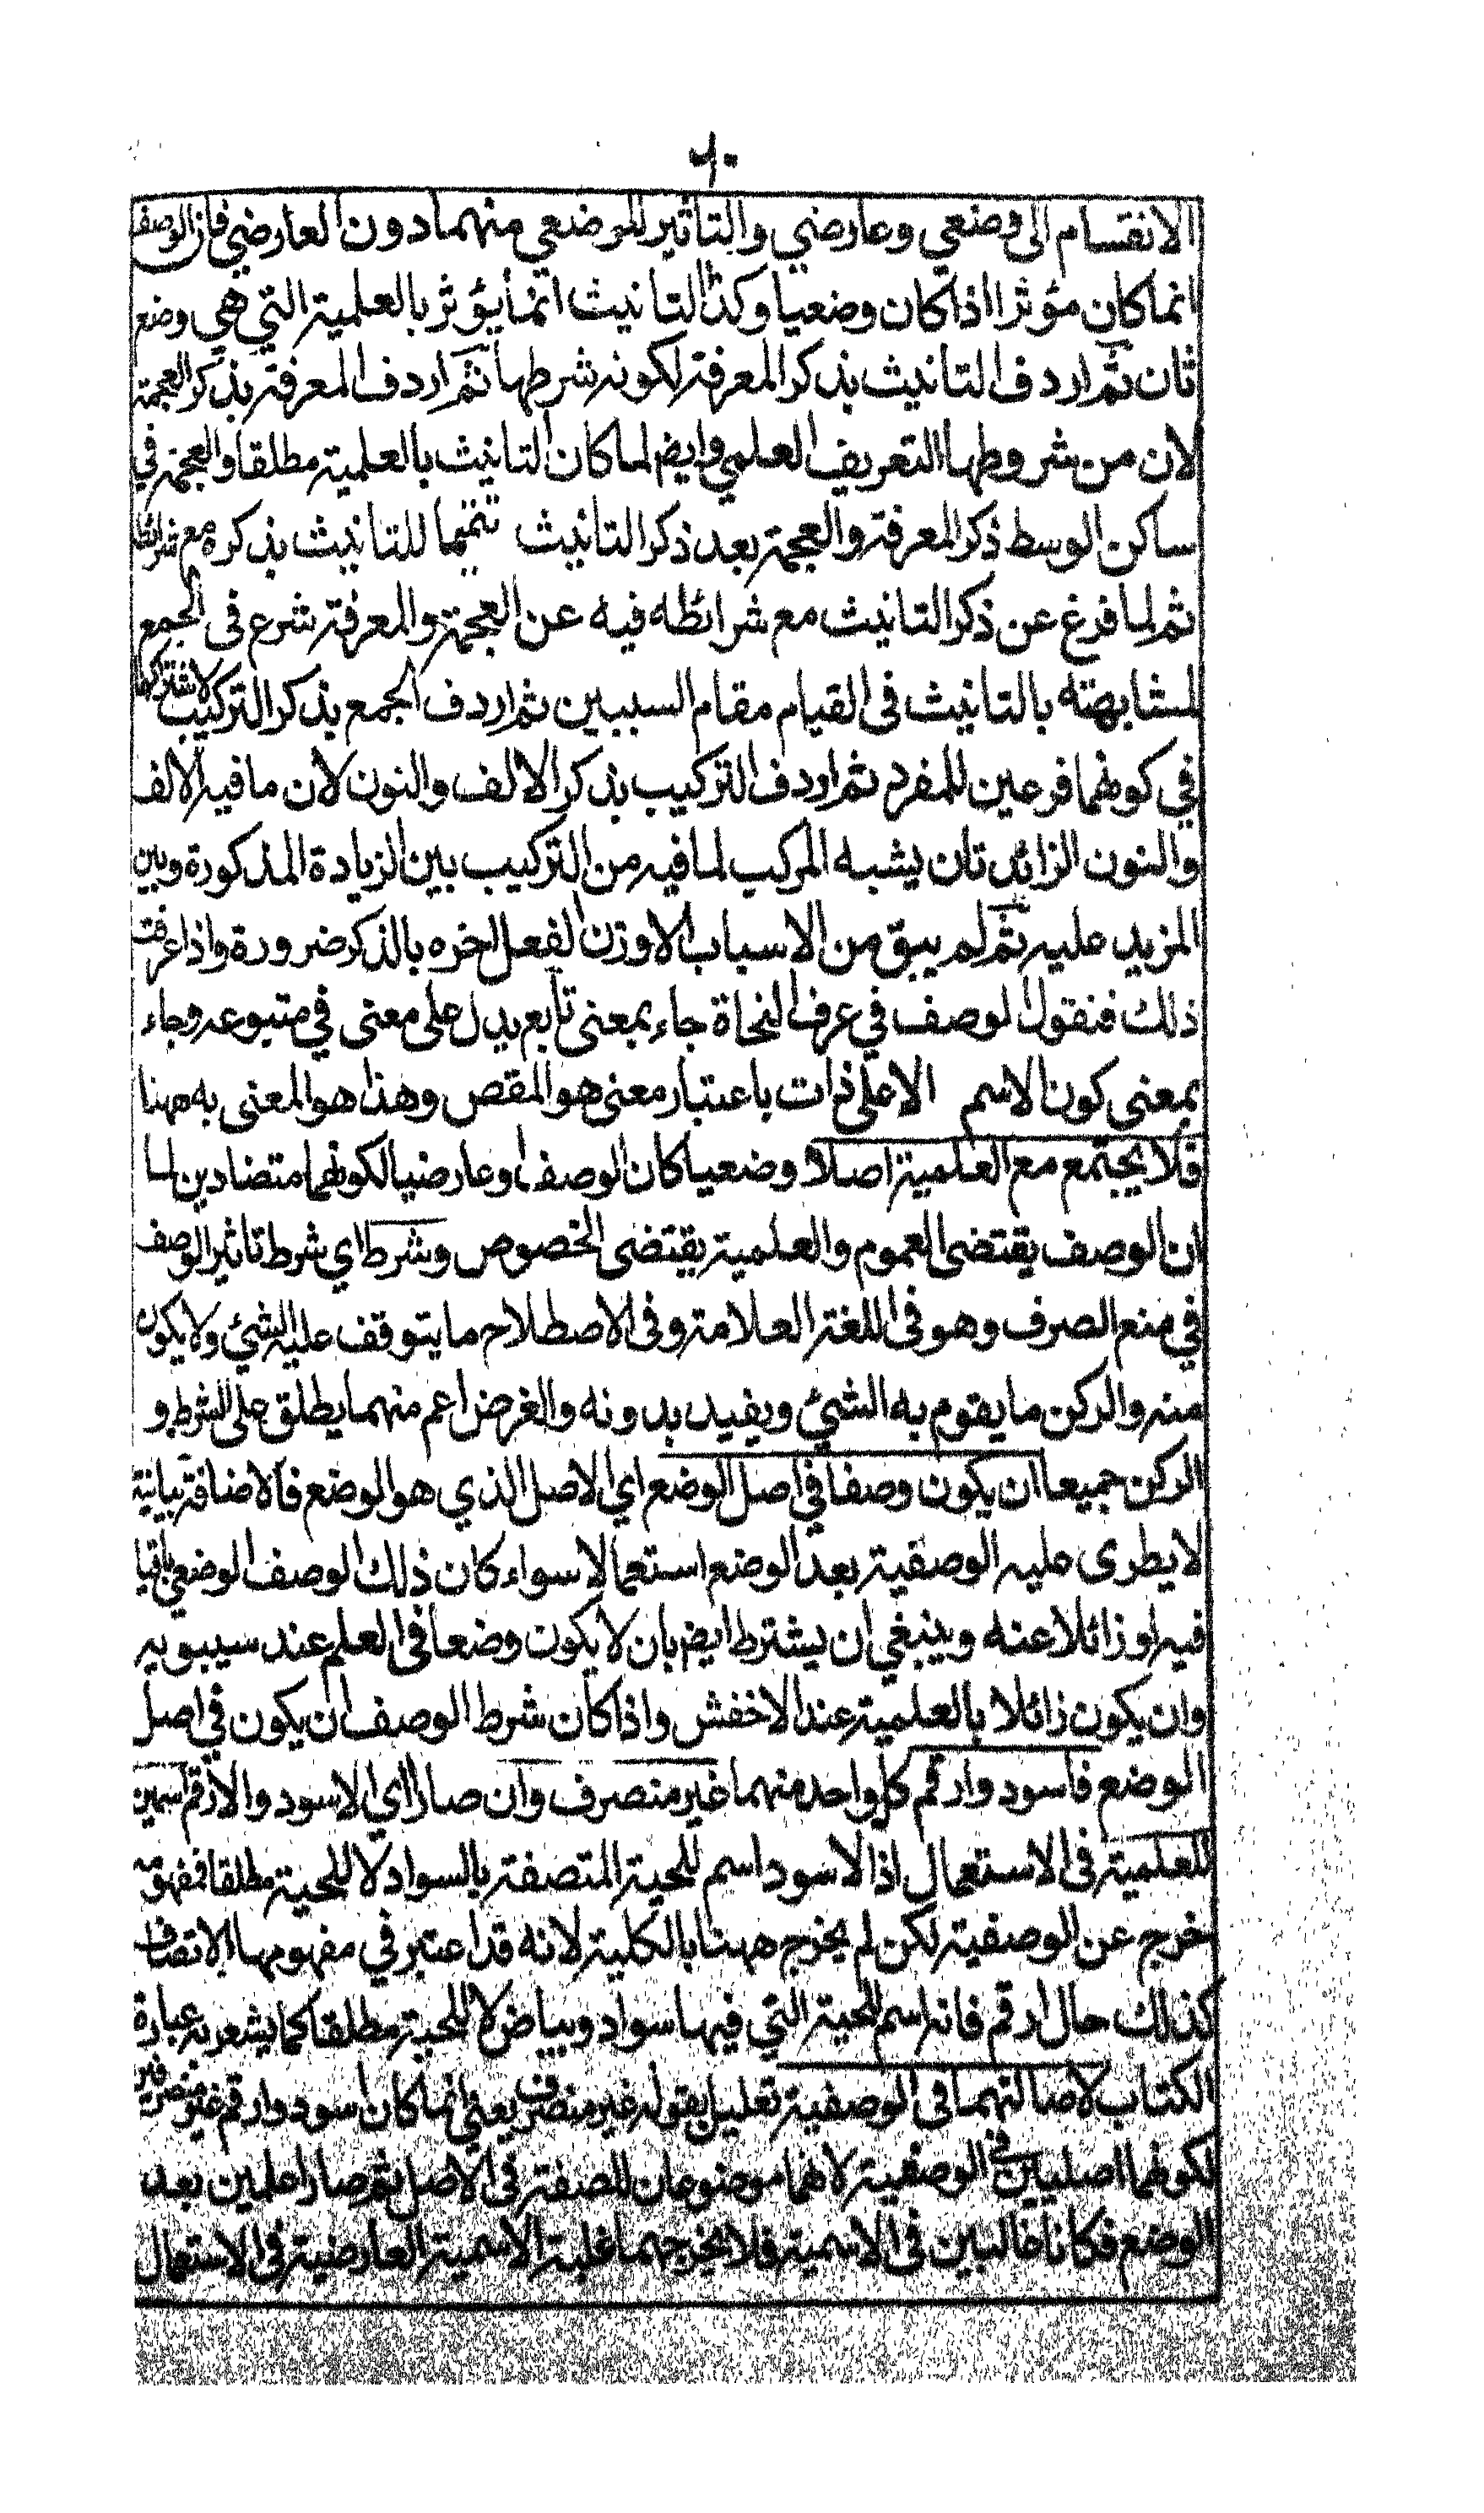 ٦٠
الانقسام الى وضعي وعارضي والتاثير للوضعي منهما دون العارضي فان الوصف
انما كان مؤثرا اذا كان وضعيا وكذا التانيث انما يؤثر بالعلمية التي هي وضع
ثان ثم اردف التانيث بذكر المعرفة لكونه شرطها ثم اردف المعرفة بذكر العجمة
لان من شروطها التعريف العلمي وايضا لما كان التانيث بالعلمية مطلقا والعجمة في
ساكن الوسط ذكر المعرفة والعجمة بعد ذكر التانيث تتميما للتانيث بذكره مع شرائطه
ثم لما فرغ عن ذكر التانيث مع شرائطه فيه عن العجمة والمعرفة شرع في الجمع
لمشابهته بالتانيث في القيام مقام السببين ثم اردف الجمع بذكر التركيب لاشتراكهما
في كونهما فرعين للمفرد ثم اردف التركيب بذكر الالف والنون لان ما فيه الالف
والنون الزائدتان يشبه المركب لما فيه من التركيب بين الزيادة المذكورة وبين
المزيد عليه ثم لم يبق من الاسباب الا وزن الفعل اخره بالذكر ضرورة واذا عرفت
ذلك فنقول الوصف في عرف النحاة جاء بمعنى تابع يدل على معنى في متبوعه وجاء
بمعنى كون الاسم الا على ذات باعتبار معنى هو المقص وهذا هو المعنى به ههنا
فلا يجتمع مع العلمية اصلا وضعيا كان الوصف او عارضيا لكونهما متضادين لما
ان الوصف يقتضى العموم والعلمية يقتضى الخصوص وشرط اي شرط تاثير الوصف
في منع الصرف وهو في اللغة العلامة وفى الاصطلاح ما يتوقف عليه الشيئ ولا يكون
منه والركن ما يقوم به الشيئ ويفيد بدونه والغرض اعم منهما يطلق على الشرط و
الركن جميعا ان يكون وصفا في اصل الوضع اي الاصل الذي هو الوضع فالاضافة بيانية
لا يطرى عليه الوصفية بعد الوضع استعمالا سواء كان ذلك الوصف الوضعي باقيا
فيه او زائلا عنه وينبغي ان يشترط ايضا بان لا يكون وضعا في العلم عند سيبويه
وان يكون زائلا بالعلمية عند الاخفش واذا كان شرط الوصف ان يكون في اصل
الوضع فاسود وارقم كل واحد منهما غير منصرف وان صارا اي الاسود والارقم اسمين
للعلمية فى الاستعمال اذا الاسود اسم للحية المتصفة بالسواد لا للحية مطلقا فمفهومه
خرج عن الوصفية لكن لم يخرج ههنا بالكلية لانه قد اعتبر في مفهومها الاتصاف
كذلك حال ارقم فانه اسم للحية التي فيها سواد وبياض لا للحية مطلقا كما يشعر به عبارة
الكتاب لاصالتهما فى الوصفية تعليل لقوله غير منصرف يعني انما كان اسود وارقم غير منصرفين
لكونهما اصليين في الوصفية لانهما موضوعان للصفة فى الاصل ثم صارا علمين بعد
الوضع فكانا غالبين فى الاسمية فلا يخرجهما غلبة الاسمية العارضية فى الاستعمال